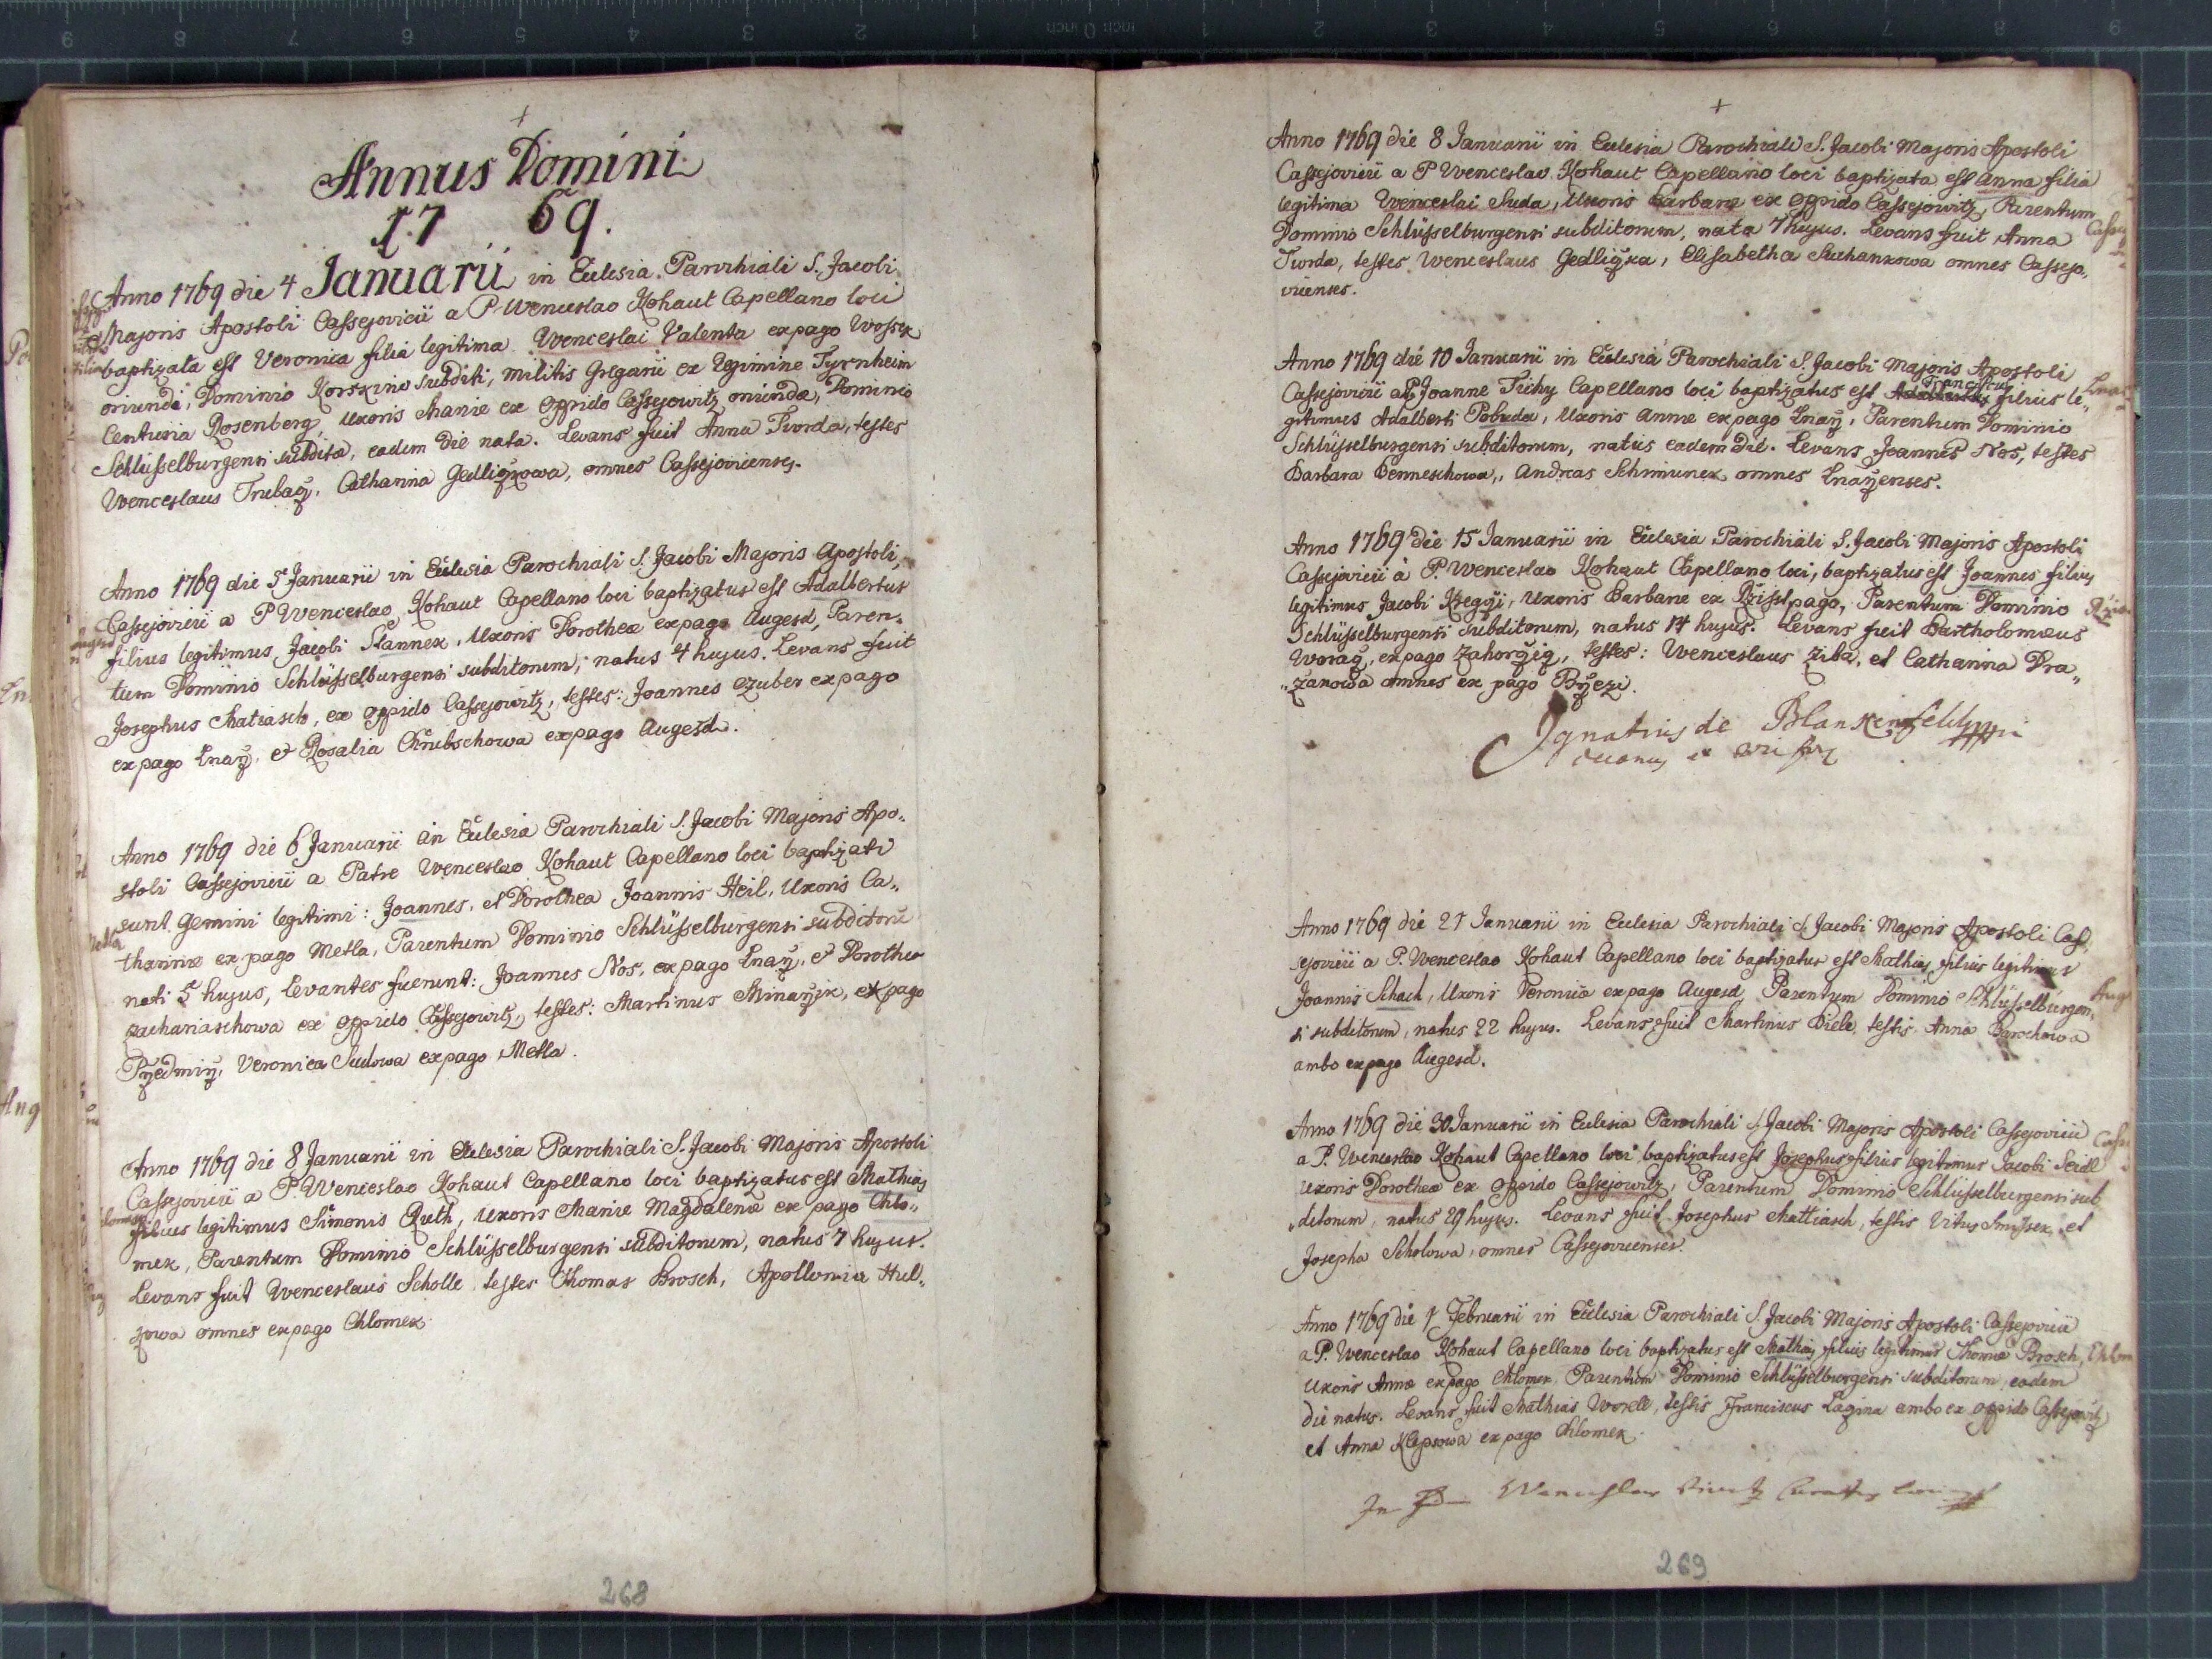 Annus Domini
1769.
Anno 1769 die 4 Januarii in Ecclesia Parochiali S. Jacobi
Majoris Apostoli Cassejovicii a P. Wenceslao Kohaut Capellano loci
baptizata est Veronica filia legitima Wenceslai Valenta ex pago Wossek
oriundi, Dominio Korskino subditi, militis Gregarii ex Regimine Tyrnheim
Centuria Rosenberg, uxoris Mariæ ex oppido Cassejowitz oriundæ, Dominio
Schlüsselburgensi subdita, eadem die nata. Levans fuit Anna Tworda, testes
Wenceslaus Trubacz, Catharina Gedliczkowa, omnes Cassejovicenses.
Anno 1769 die 5 Januarii in Ecclesia Parochiali S. Jacobi Majoris Apostoli
Cassejovicii a P. Wenceslao Kohaut Capellano loci baptizatus est Adalbertus
filius legitimus Jacobi Stannek, Uxoris Dorotheæ ex pago Augesd, Paren-
tum Dominio Schlüsselburgensi subditorum, natus 4 hujus. Levans fuit
Josephus Matiasch, ex oppido Cassejowitz, testes: Joannes Czuber ex pago
ex pago Lnarz, et Rosalia Chrubschowa ex pago Augesd.
Anno 1769 die 6 Januarii in Ecclesia Parochiali S. Jacobi Majoris Apo-
stoli Cassejovicii a Patre Wenceslao Kohaut Capellano loci baptizati
sunt gemini legitimi: Joannes, et Dorothea Joannis Heil, Uxoris Ca-
tharinæ ex pago Metla, Parentum Dominio Schlüsselburgensi subditorū
nati 5 hujus, Levantes fuerunt: Joannes Nos, ex pago Lnarz, et Dorothea
Zachariaschowa ex oppido Cassejowitz, testes: Martinus Minarzik, ex pago
Przedmirz, Veronica Sudowa ex pago Metla.
Anno 1769 die 8 Januarii in Ecclesia Parochiali S. Jacobi Majoris Apostoli
Cassejovicii a P. Wenceslao Kohaut Capellano loci baptizatus est Mathias
filius legitimus Simonis Ruth, uxoris Mariæ Magdalenæ ex pago Chlo-
mek, Parentum Dominio Schlüsselburgensi subditorum, natus 7 hujus.
Levans fuit Wenceslaus Scholle, testes Thomas Brosch, Apollonia Hul-
zowa omnes ex pago Chlomek
268
Anno 1769 die 8 Januarii in Ecclesia Parochiali S. Jacobi Majoris Apostoli
Cassejovicii a P. Wenceslao Kohaut Capellano loci baptizata est Anna filia
legitima Wenceslai Suda, Uxoris Barbaræ ex oppido Cassejowitz, Parentum
Dominio Schlüsselburgensi subditorum, nata 7 hujus. Levans fuit Anna
Tworda, testes Wenceslaus Gedliczka, Elisabetha Suchankowa omnes Cassejo-
vicenses.
Anno 1769 die 10 Januarii in Ecclesia Parochiali S. Jacobi Majoris Apostoli
Cassejovicii a P. Joanne Tichy Capellano loci baptizatus est Adalbertus Franciscus filius le-
gitimus Adalberti Pobuda, Uxoris Annæ ex pago Lnarz, Parentum Dominio
Schlüsselburgensi subditorum, natus eadem die. Levans Joannes Nos, testes
Barbara Benneschowa, Andreas Schmunek omnes Lnarzenses.
Anno 1769 die 15 Januarii in Ecclesia Parochiali S. Jacobi Majoris Apostoli
Cassejovicii a P. Wenceslao Kohaut Capellano loci, baptizatus est Joannes filius
legitimus Jacobi Kregczi, Uxoris Barbaræ ex pago, Parentum Dominio
Schlüsselburgensi subditorum, natus 14 hujus. Levans fuit Bartholomæus
Woracz, ex pago Zahorczicz, testes: Wenceslaus Ziba, et Catharina Dra-
zakowa omnes ex pago Brzezi.
Ignatius de Blankenfeldt
Anno 1769 die 21 Januarii in Ecclesia Parochiali S. Jacobi Majoris Apostoli Cas-
sejovicii a P. Wenceslao Kohaut Capellano loci baptizatus est Mathias filius legitimus
Joannis Schach, Uxoris Veronica ex pago Augesd Parentum Dominio Schlüsselburgen-
si subditorum, natus 22 hujus. Levans fuit Martinus Diele, testis Anna Barochowa
ambo ex pago Augesd.
Anno 1769 die 30 Januarii in Ecclesia Parochiali S. Jacobi Majoris Apostoli Cassejovicii
a P. Wenceslao Kohaut Capellano loci baptizatus est Josephus filius legitimus Jacobi Seidl
Uxoris Dorotheæ ex oppido Cassejowitz, Parentum Dominio Schlüsselburgensi sub-
ditorum, natus 29 hujus. Levans fuit Josephus Mattiasch, testis Vitus Smissek, et
Josepha Scholowa, omnes Cassejovicenses.
Anno 1769 die 1 Februarii in Ecclesia Parochiali S. Jacobi Majoris Apostoli Cassejovicii
a P. Wenceslao Kohaut Capellano loci baptizatus est Mathias filius legitimus Thomæ Brosch,
Uxoris Annæ ex pago Chlomek Parentum Dominio Schlüsselburgensi subditorum, eadem
die natus. Levans fuit Mathias Worell, testis Franciscus Lagina ambo ex oppido Cassejowitz
et Anna Klepsowa ex pago Chlomek
269